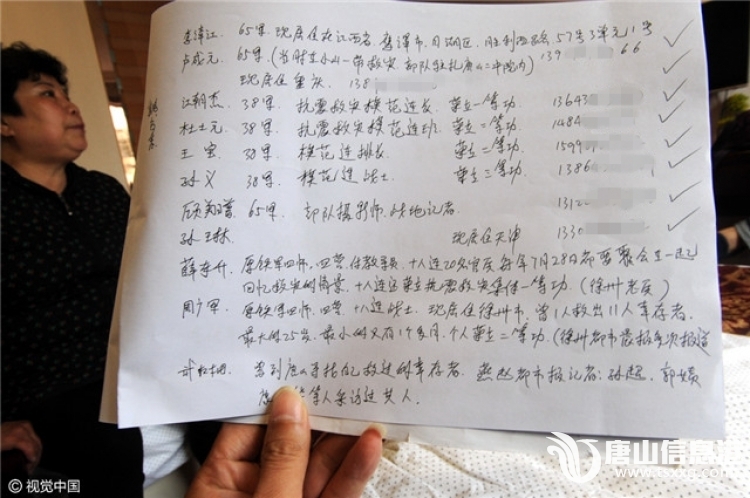 李泽江、65军、现居住在江西省、鹰潭市、月湖区、胜利 57号3单元1号
卢成元、65军、(当时在小山一带救灾、部队驻扎唐山二中院内) 139 66
现居住重庆、138
江朝杰、38军、抗震救灾模范连长、荣立一等功、13643
杜士元、38军、抗震救灾模范连班、荣立二等功、1484
王宝、38军、模范连排长、荣立二等功、1599
孙义、38军、模范连战士、荣立三等功、1386
65军、部队摄影师、战地记者、1312
孙玉林 现居住天津 1330
薛 升、原铁军四师、四营、付教导员、十八连20名官兵每年7月28日都要聚会在一起
回忆救灾的情景、十八连官荣立抗震救灾集体一等功、(徐州老兵)
周广军、原铁军四师、四营、十八连战士、现居住徐州市、曾1人救出11人幸存者、
最大的25岁、最小的又有1个多月、个人荣立二等功、(徐州都市晨报多次报道
寻找自己救过的幸存者、燕赵都市报记者:孙超、郭
等人采访过其人.
© 视觉中国
唐山信息港